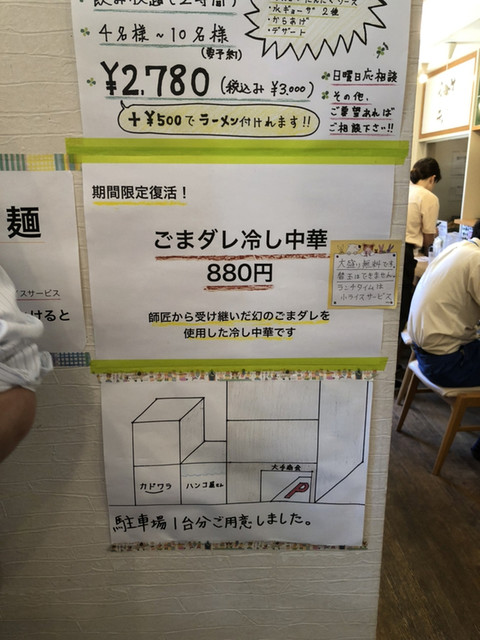 飲み放題で2時間)
・水ギョーザ2個
・からあげ
・デザート
4名様～10名様
(要予約)
¥2,780 (税込み¥3,000)
+¥500でラーメン付けれます!!
日曜日応相談
その他、
ご要望あれば
ご相談下さい!!
麺
イスサービス
けると
期間限定復活！
ごまダレ冷し中華
880円
師匠から受け継いだ幻のごまダレを
使用した冷し中華です
大盛り無料です。
替玉はできません。
ランチタイムは
小ライスサービス
カドワラ
ハンコ屋さん
大手商会
P
駐車場1台分ご用意しました。